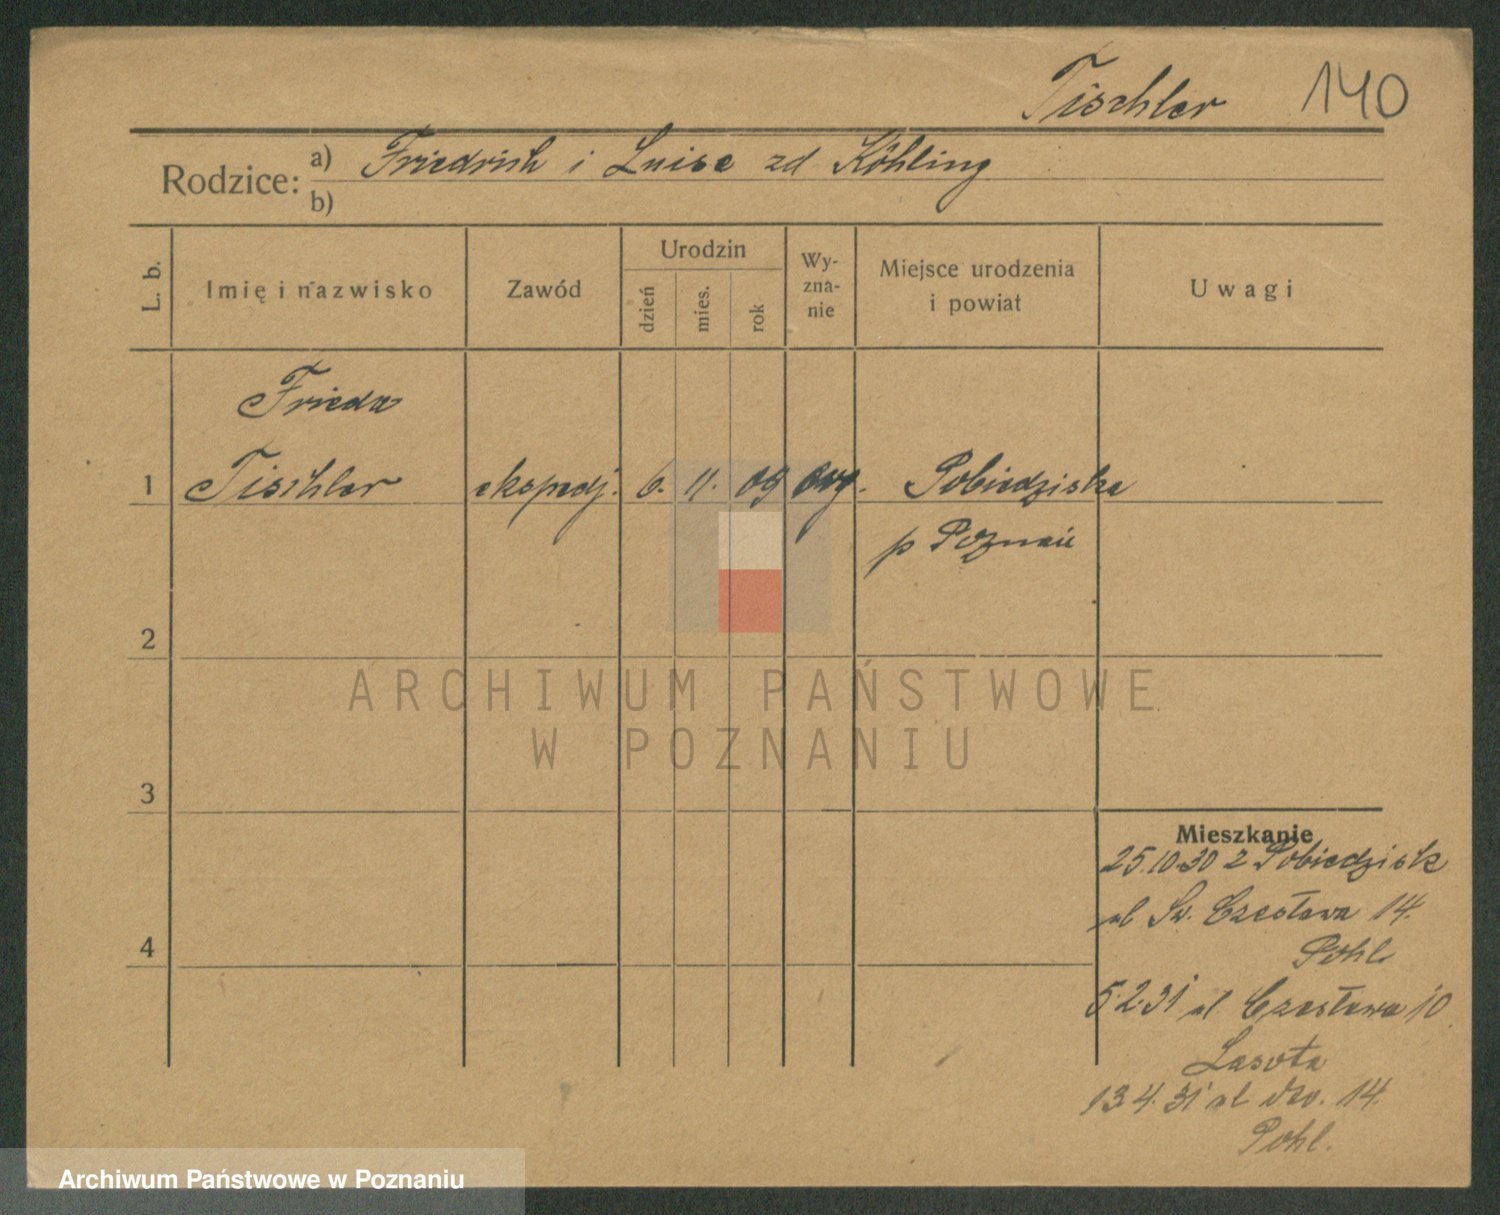 Tischler 140
Rodzice: a) Friedrich i Luise zd Köhling
b)
L. b. Imię i nazwisko Zawód Urodzin dzień mies. rok Wy-zna-nie Miejsce urodzenia i powiat Uwagi
Frieda
1 Tischler ekspedj. 6. 11. 09 ewg. Pobiedziska
p Poznań
2
ARCHIWUM PAŃSTWOWE
W POZNANIU
3
Mieszkanie
25.10.30 z Pobiedzisk
ul Św. Czesława 14.
4
Pohl.
5.2.31 ul. Czesława 10
Lasota
13.4.31 ul 14.
Pohl.
Archiwum Państwowe w Poznaniu